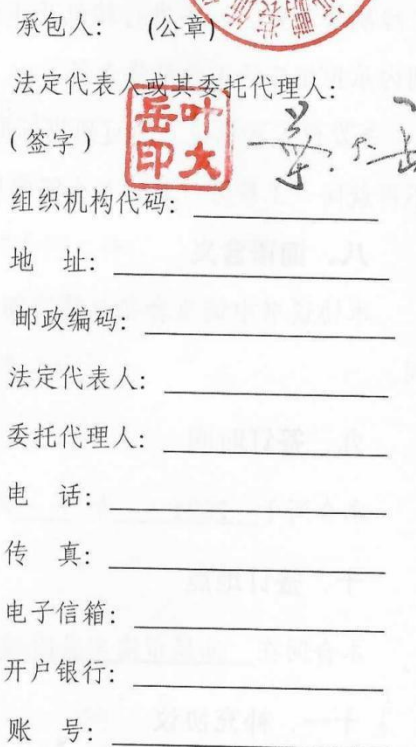 承包人： (公章)
法定代表人或其委托代理人：
(签字)
叶大
岳印
组织机构代码：
地 址：
邮政编码：
法定代表人：
委托代理人：
电 话：
传 真：
电子信箱：
开户银行：
账 号：